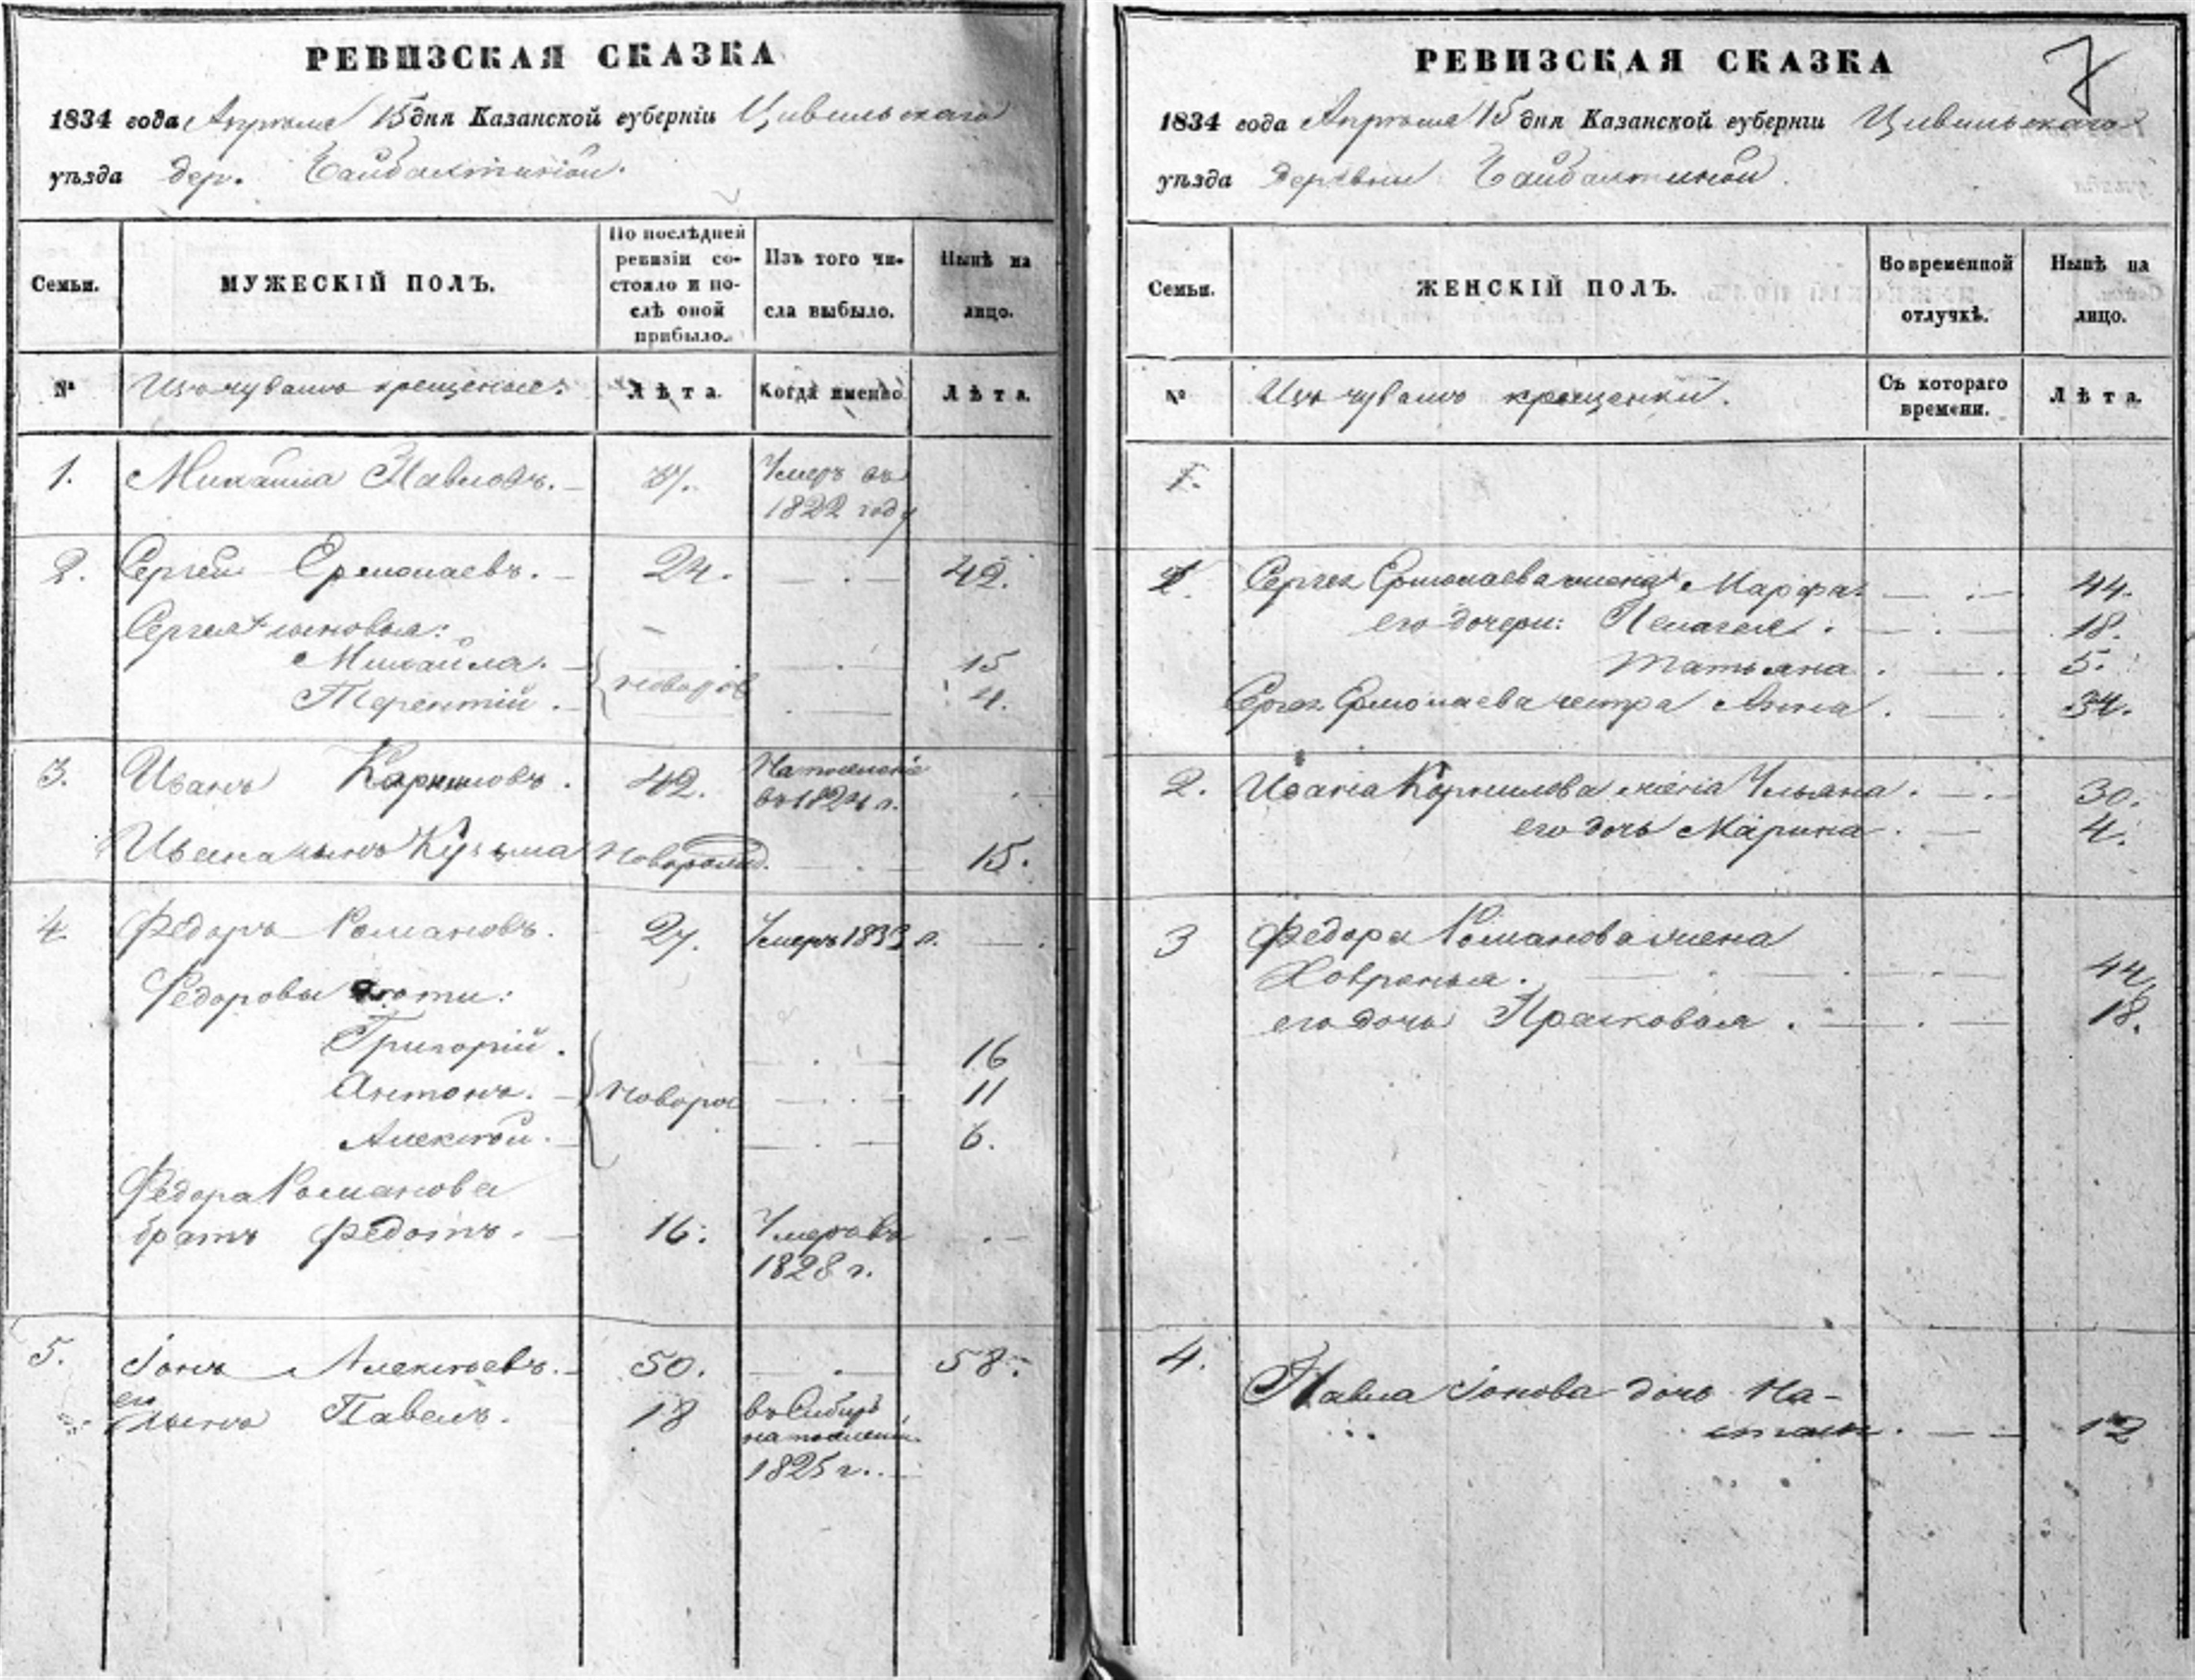 РЕВИЗСКАЯ СКАЗКА
1834 года Апрѣля 15 дня Казанской губерніи Цивильскаго
уѣзда дер.
Семьи.
МУЖЕСКІЙ ПОЛЪ.
По послѣдней
ревизіи со-
стояло и по-
слѣ оной
прибыло.
Изъ того чи-
сла выбыло.
Нынѣ на
лицо.
№ Изъ чувашъ крещеные: Лѣта. Когда именно Лѣта.
1. Михайла Павловъ. Умеръ въ
1822 году
2. Сергей Ермолаевъ. 24. 42.
Сергея сыновья:
Михайла. 15
Терентій. новорож 4.
3. Иванъ Корниловъ. 42. На поселеніе
въ 1824 г.
Ивана сынъ Кузьма новорожд. 15.
4 Федоръ Романовъ. 27. Умеръ 1833 г.
Федоровы дети:
Григорій. 16
Антонъ. новорож 11
Алексѣй. 6.
Федора Романова
братъ Федотъ. 16. Умеръ въ
1828 г.
5. Іонъ Алексѣевъ. 50. 58.
его
сынъ Павелъ. 18 въ Сибирь
на поселеніи
1825 г.
РЕВИЗСКАЯ СКАЗКА
7
1834 года Апрѣля 15 дня Казанской губерніи Цивильскаго
уѣзда деревни
Семьи.
ЖЕНСКІЙ ПОЛЪ.
Во временной
отлучкѣ.
Нынѣ на
лицо.
№ Изъ чувашъ крещенки. Съ котораго
времени.
Лѣта.
1.
Сергея Ермолаева жена Марфа 44.
его дочери: Пелагея. 18.
Татьяна. 5.
Сергея Ермолаева сестра Анна. 34.
2. Ивана Корнилова жена Ульяна. 30.
его дочь Марина. 4.
3 Федора Романова жена
Ховронья. 44
его дочь Прасковья. 18.
4. Павла Іонова дочь На-
стась. 12